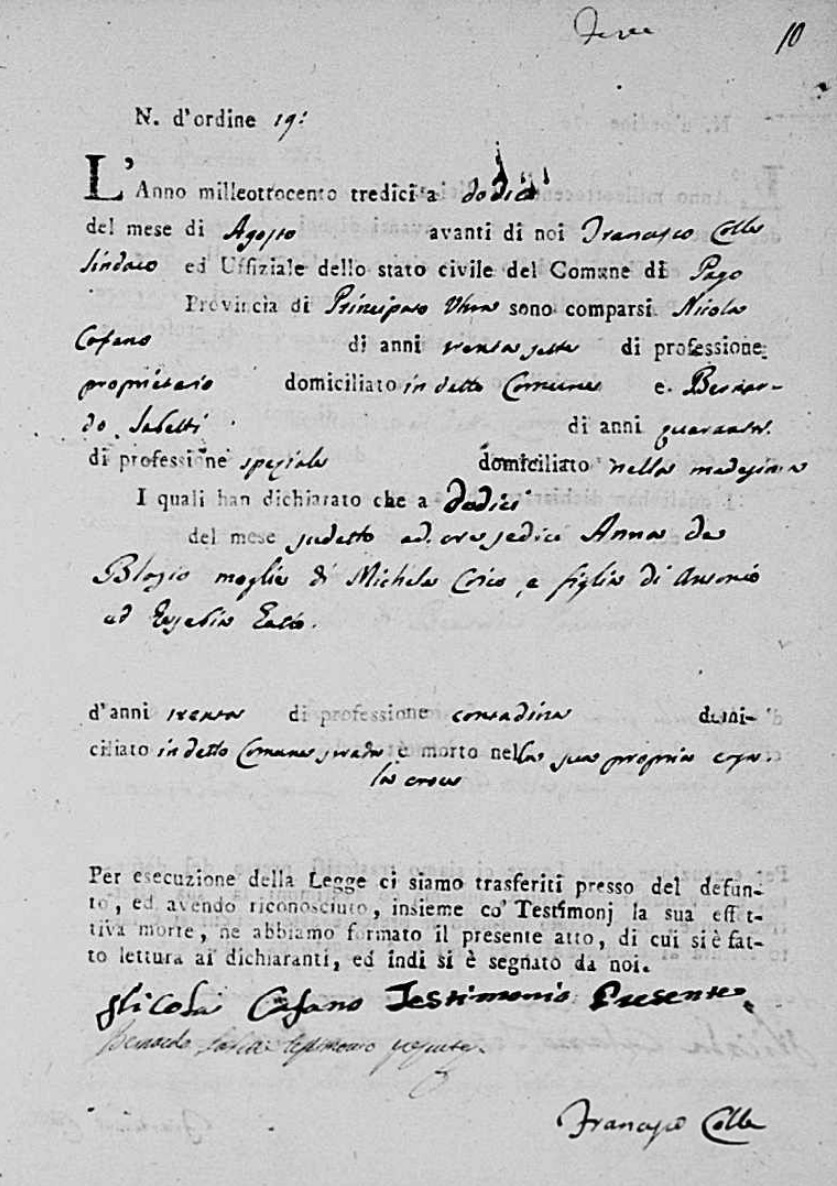 10
N. d'ordine 19:
L'Anno milleottocento tredici a dodici
del mese di Agosto avanti di noi Francesco Colle
Sindaco ed Uffiziale dello stato civile del Comune di Pago
Provincia di Principato Ultra sono comparsi Nicola
Cofano di anni trenta sette di professione
proprietario domiciliato in detto Comune e Bernar-
do di anni quaranta
di professione speziale domiciliato nella medesima
I quali han dichiarato che a dodici
del mese sudetto ad ore sedici Anna de
Blasio moglie di Michele e figlia di Antonio
ed Eusebia
d'anni trenta di professione contadina domi-
ciliato in detto Comune strada è morto nella sua propria casa
la croce
Per esecuzione della Legge ci siamo trasferiti presso del defun-
to, ed avendo riconosciuto, insieme co' Testimonj la sua effet-
tiva morte, ne abbiamo formato il presente atto, di cui si è fat-
to lettura ai dichiaranti, ed indi si è segnato da noi.
Nicola Cofano Testimonio Presente
testimonio presente
Francesco Colle